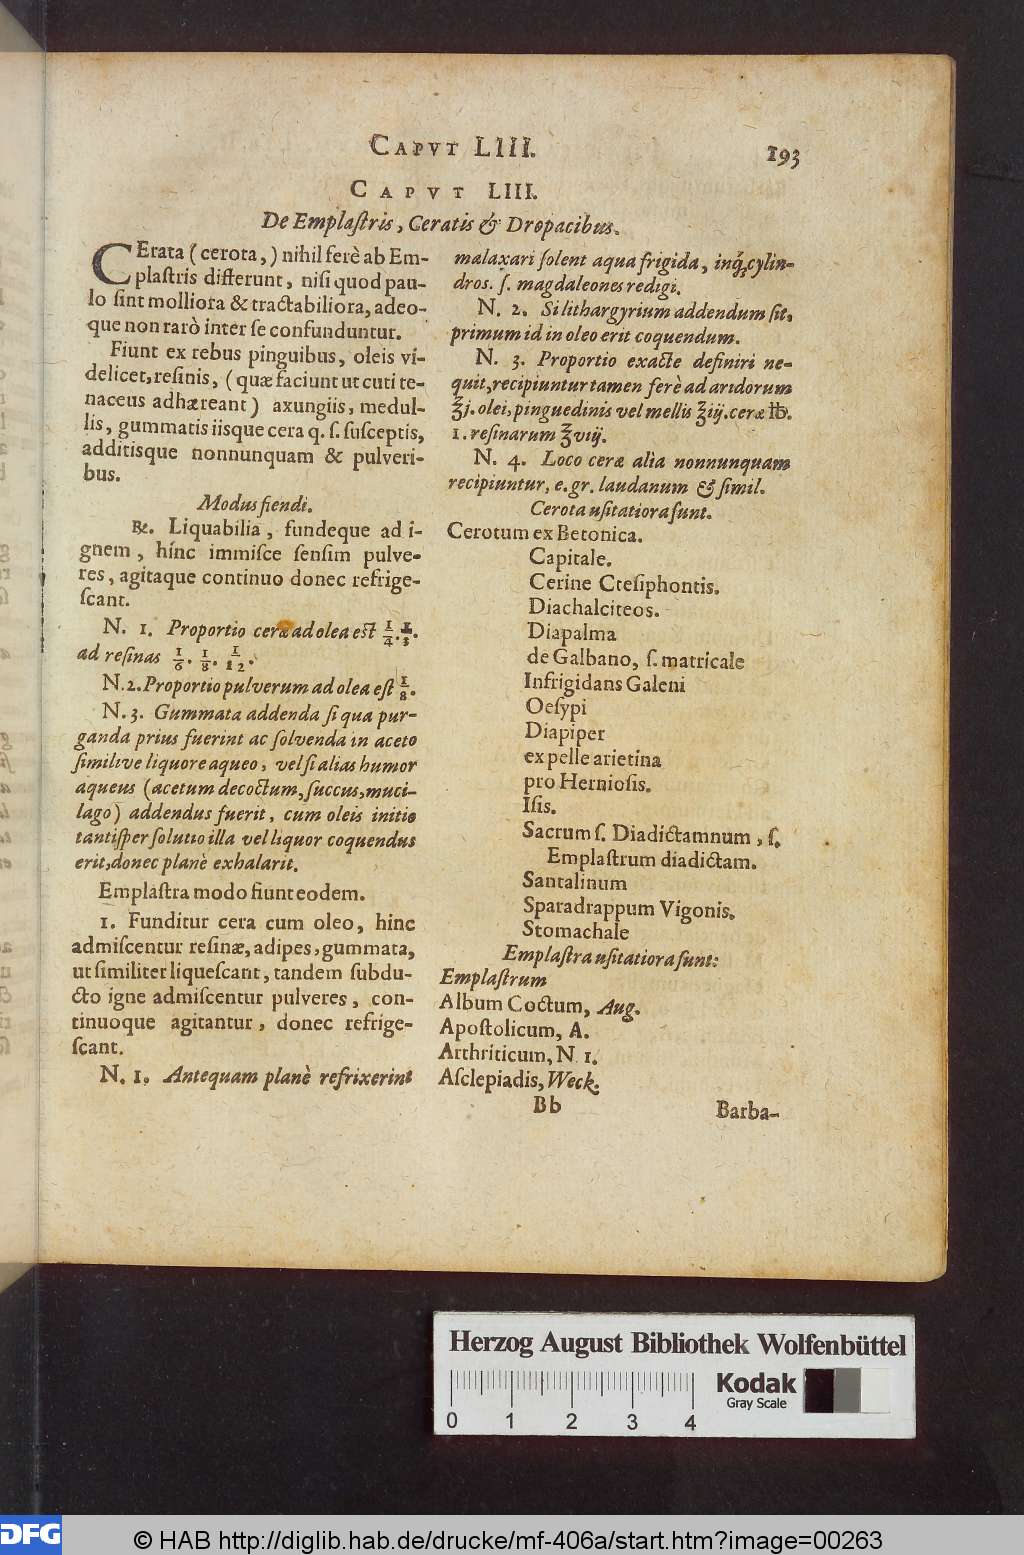 CAPVT LIII.
193
CAPVT LIII.
De Emplaſtris, Ceratis & Dropacibus.
CErata (cerota,) nihil ferè ab Em-
plaſtris differunt, niſi quod pau-
lo ſint molliora & tractabiliora, adeo-
que non rarò inter ſe confunduntur.
Fiunt ex rebus pinguibus, oleis vi-
delicet, reſinis, (quæ faciunt ut cuti te-
naceus adhæreant) axungiis, medul-
lis, gummatis iisque cera q. ſ. ſuſceptis,
additisque nonnunquam & pulveri-
bus.
Modus fiendi.
℞. Liquabilia, fundeque ad i-
gnem, hinc immiſce ſenſim pulve-
res, agitaque continuo donec refrige-
ſcant.
N. 1. Proportio ceræ ad olea eſt 1/4. 1/3.
ad reſinas 1/6. 1/8. 1/12.
N. 2. Proportio pulverum ad olea eſt 1/8.
N. 3. Gummata addenda ſi qua pur-
ganda prius fuerint ac ſolvenda in aceto
ſimilive liquore aqueo, vel ſi alias humor
aqueus (acetum decoctum, ſuccus, muci-
lago) addendus fuerit, cum oleis initio
tantiſper ſolutio illa vel liquor coquendus
erit, donec planè exhalarit.
Emplaſtra modo fiunt eodem.
1. Funditur cera cum oleo, hinc
admiſcentur reſinæ, adipes, gummata,
ut ſimiliter liqueſcant, tandem ſubdu-
cto igne admiſcentur pulveres, con-
tinuoque agitantur, donec refrige-
ſcant.
N. 1. Antequam planè refrixerint
malaxari ſolent aqua frigida, inq́; cylin-
dros. ſ. magdaleones redigi.
N. 2. Si lithargyrium addendum ſit,
primum id in oleo erit coquendum.
N. 3. Proportio exacte definiri ne-
quit, recipiuntur tamen ferè ad aridorum
℥j. olei, pinguedinis vel mellis ℥iij. ceræ ℔.
1. reſinarum ℥viij.
N. 4. Loco ceræ alia nonnunquam
recipiuntur, e. gr. laudanum & ſimil.
Cerota uſitatiora ſunt.
Cerotum ex Betonica.
Capitale.
Cerine Cteſiphontis.
Diachalciteos.
Diapalma
de Galbano, ſ. matricale
Infrigidans Galeni
Oeſypi
Diapiper
ex pelle arietina
pro Hernioſis.
Iſis.
Sacrum ſ. Diadictamnum, ſ.
Emplaſtrum diadictam.
Santalinum
Sparadrappum Vigonis.
Stomachale
Emplaſtra uſitatiora ſunt:
Emplaſtrum
Album Coctum, Aug.
Apoſtolicum, A.
Arthriticum, N. 1.
Aſclepiadis, Weck.
Bb
Barba-
Herzog August Bibliothek Wolfenbüttel
0 1 2 3 4
Kodak
Gray Scale
DFG
© HAB http://diglib.hab.de/drucke/mf-406a/start.htm?image=00263